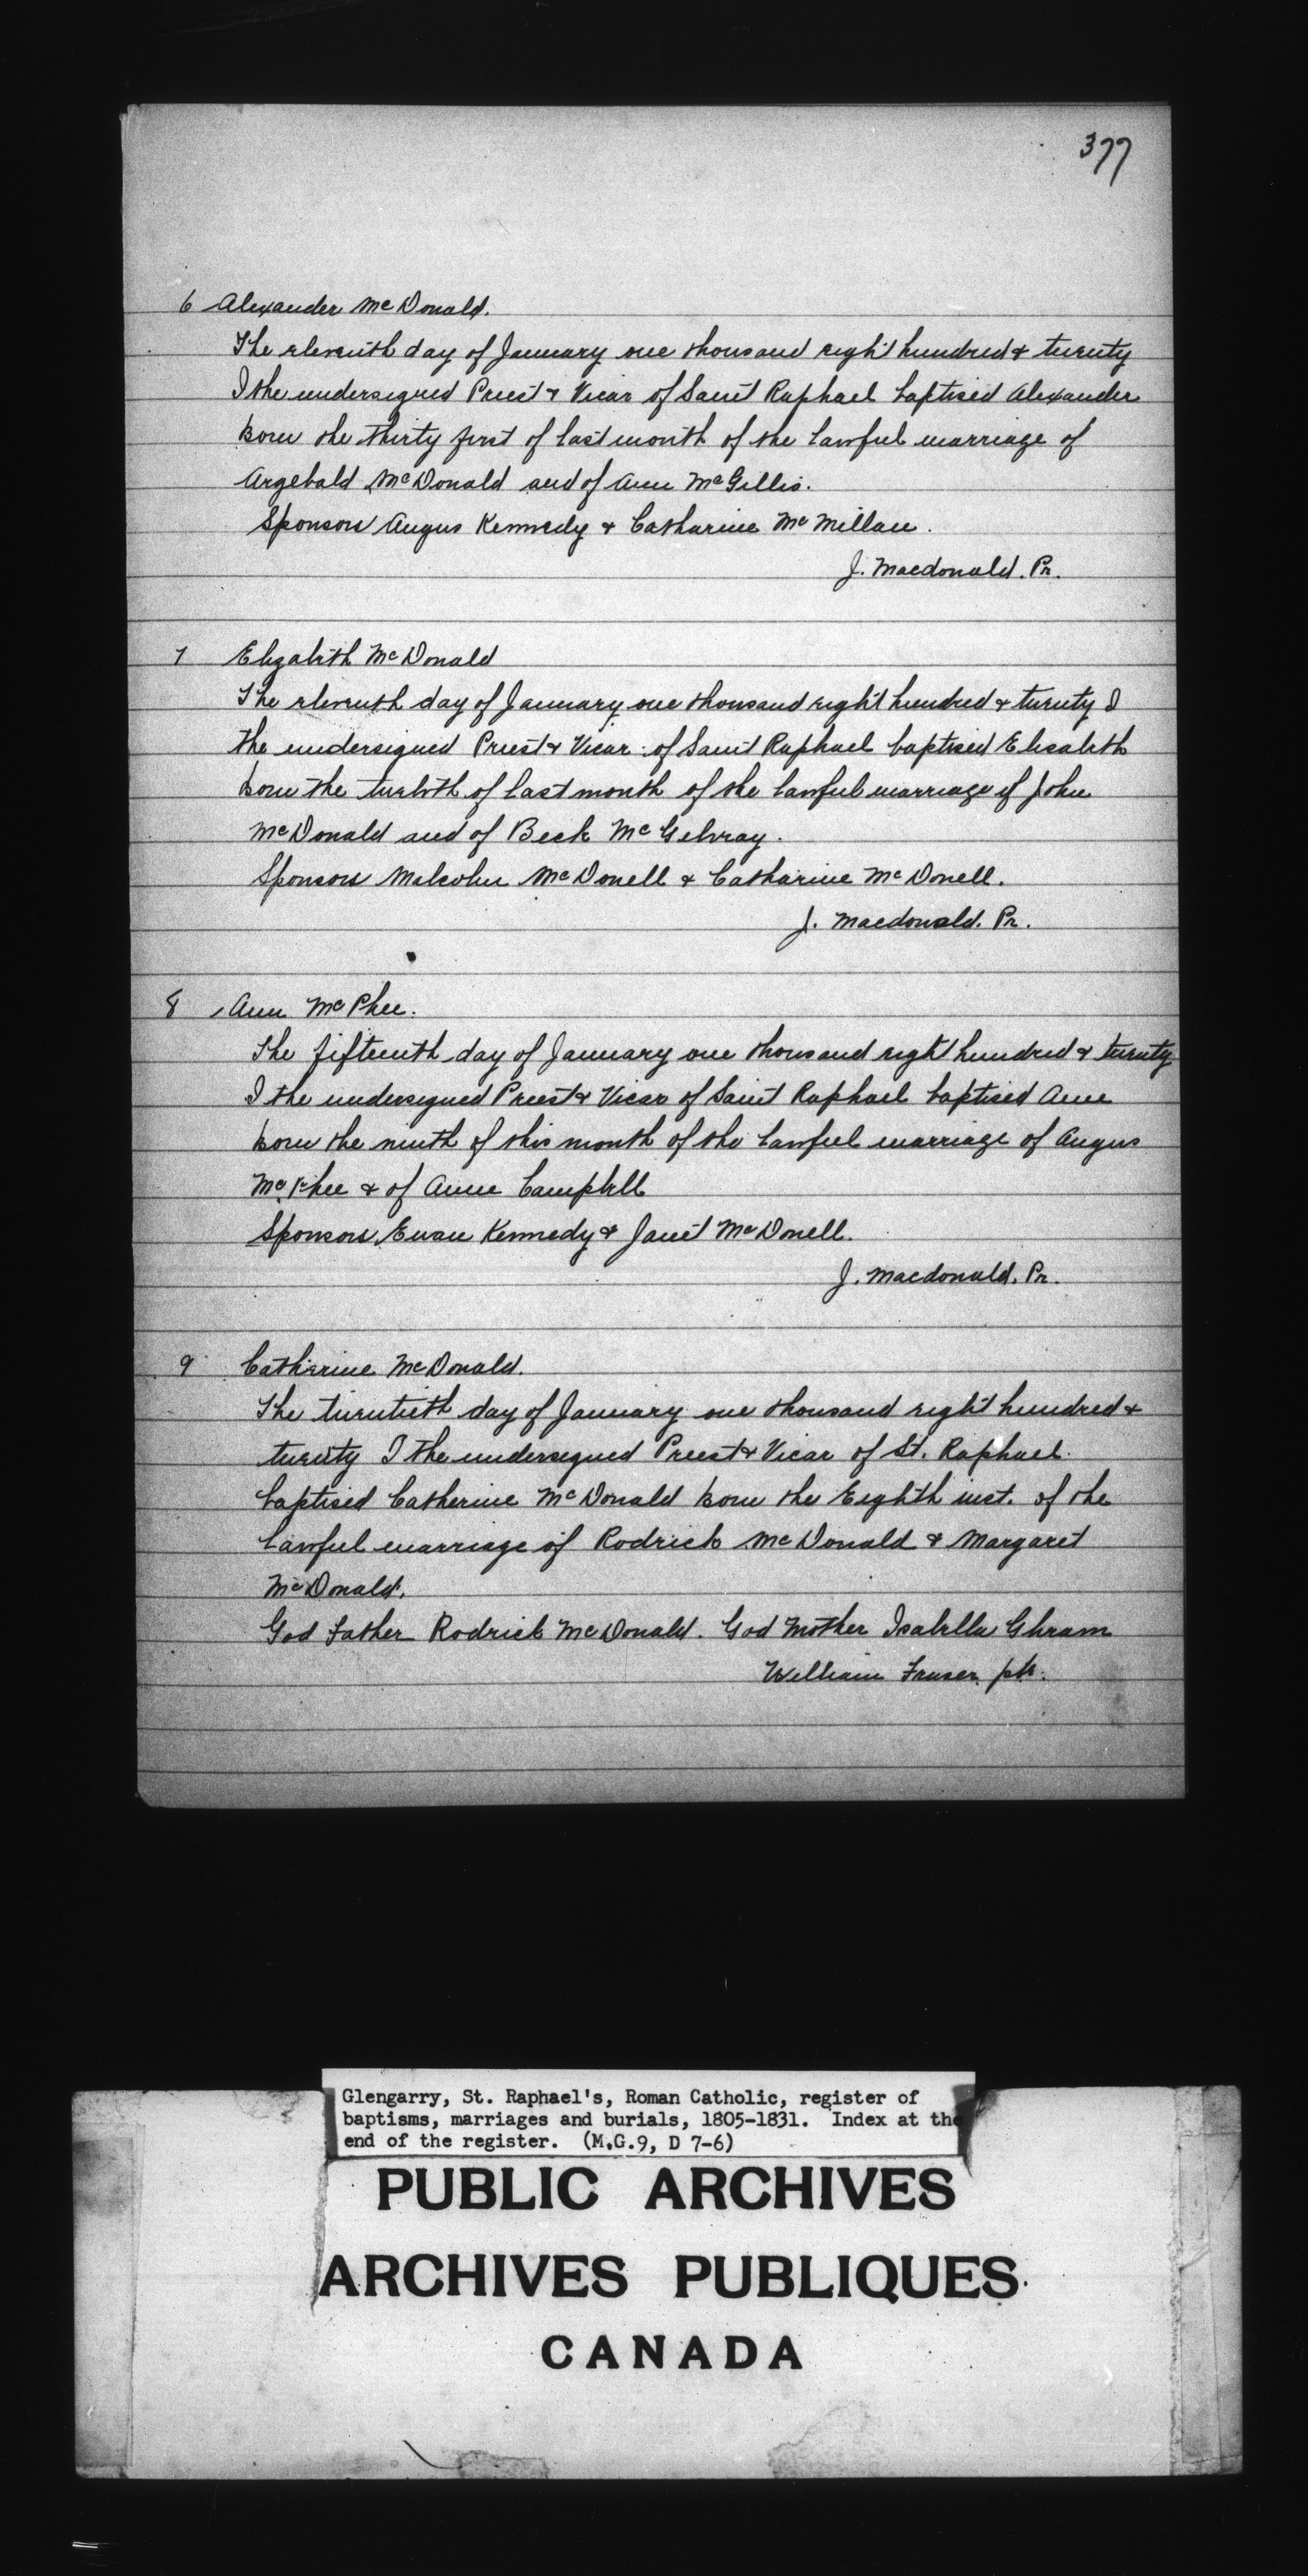 377
6 Alexander McDonald.
The eleventh day of January one thousand eight hundred & twenty
I the undersigned Priest & Vicar of Saint Raphael baptised Alexander
born the thirty first of last month of the lawful marriage of
Argebald McDonald and of Ann McGillis.
Sponsors Angus Kennedy & Catharine McMillan.
J. Macdonald. Pr.
7 Elizabeth McDonald
The eleventh day of January one thousand eight hundred & twenty I
the undersigned Priest & Vicar of Saint Raphael baptised Elisabeth
born the twelvth of last month of the lawful marriage of John
McDonald and of Beck McGelvray.
Sponsors Malcolm McDonell & Catharine McDonell.
J. Macdonald. Pr.
8 Ann McPhee.
The fifteenth day of January one thousand eight hundred & twenty
I the undersigned Priest & Vicar of Saint Raphael baptised Anne
born the ninth of this month of the lawful marriage of Angus
McPhee & of Anne Campbell
Sponsors Ewan Kennedy & Janet McDonell.
J. Macdonald. Pr.
9 Catherine McDonald.
The twentieth day of January one thousand eight hundred &
twenty I the undersigned Priest & Vicar of St. Raphael
baptised Catherine McDonald born the Eighth inst. of the
lawful marriage of Rodrick McDonald & Margaret
McDonald.
God Father Rodrick McDonald. God Mother Isabella Ghram
William Fraser ptr.
Glengarry, St. Raphael's, Roman Catholic, register of
baptisms, marriages and burials, 1805-1831. Index at the
end of the register. (M.G.9, D 7-6)
PUBLIC ARCHIVES
ARCHIVES PUBLIQUES
CANADA